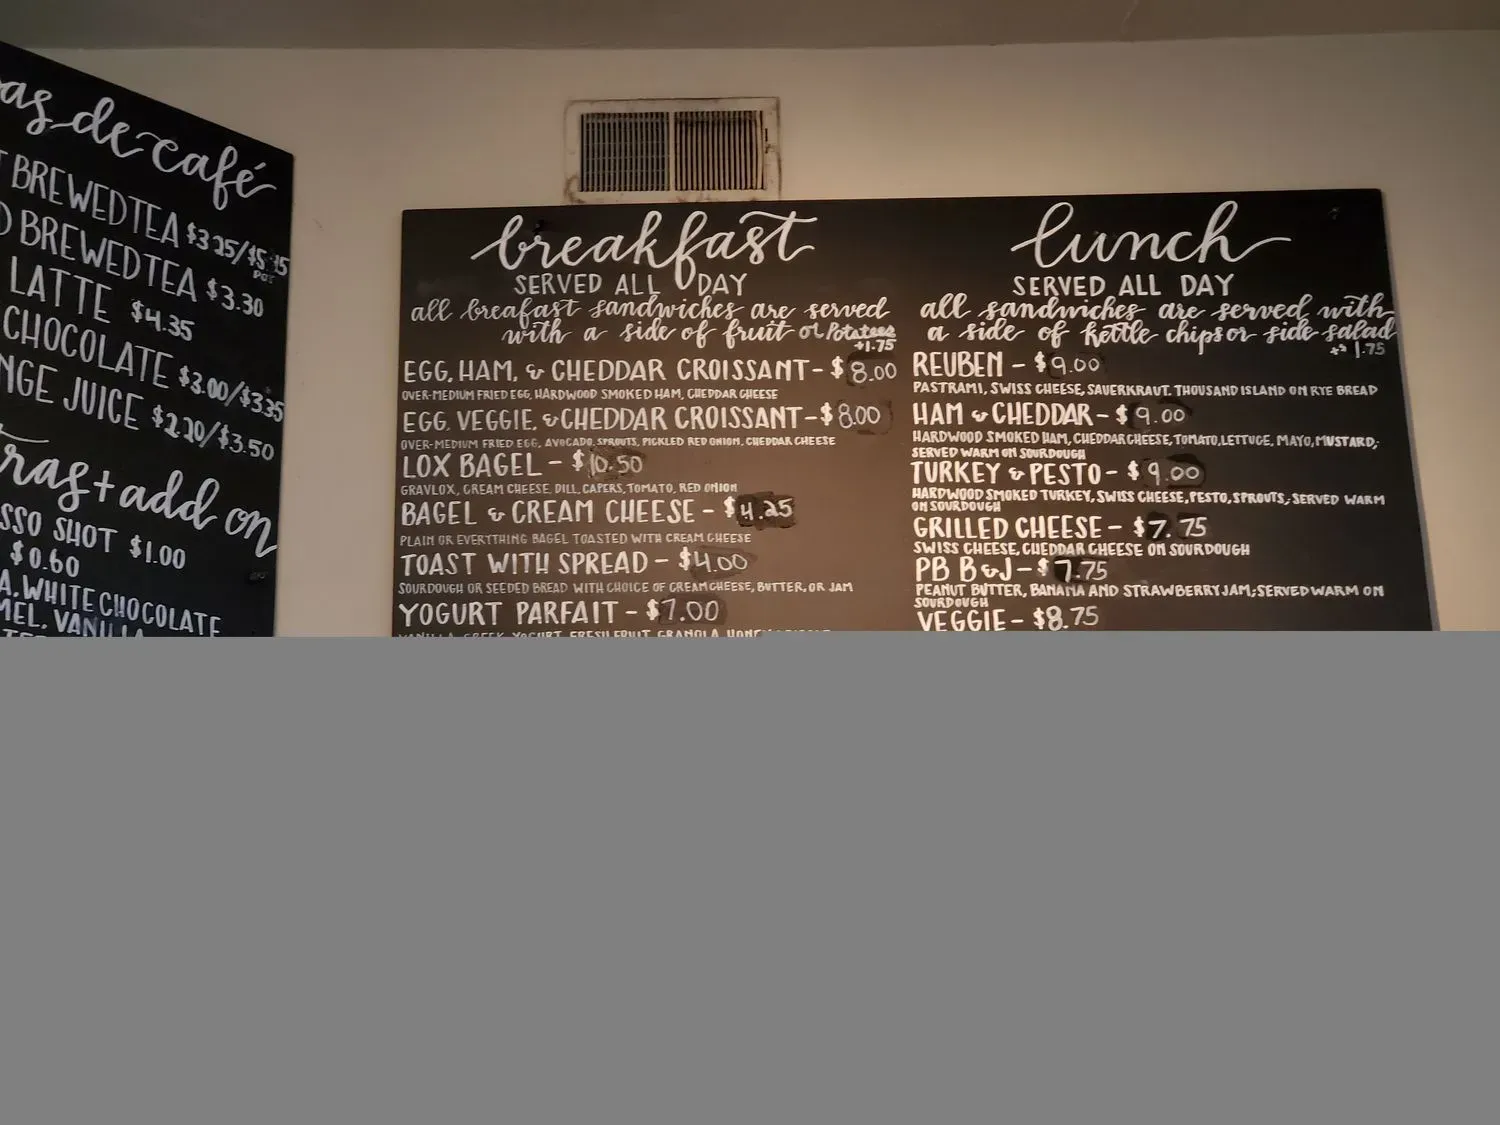 de café
BREWED TEA $3.25/
BREWED TEA $3.30
LATTE $4.35
CHOCOLATE $3.00/$3.35
JUICE /$3.50
+ add on
SHOT $1.00
$0.60
WHITE CHOCOLATE
VANILLA
breakfast
SERVED ALL DAY
all breafast sandwiches are served
with a side of fruit or Potatoes
+1.75
EGG, HAM, & CHEDDAR CROISSANT - $8.00
OVER-MEDIUM FRIED EGG, HARDWOOD SMOKED HAM, CHEDDAR CHEESE
EGG, VEGGIE, & CHEDDAR CROISSANT - $8.00
OVER-MEDIUM FRIED EGG, AVOCADO, SPROUTS, PICKLED RED ONION, CHEDDAR CHEESE
LOX BAGEL - $10.50
GRAVLOX, CREAM CHEESE, DILL, CAPERS, TOMATO, RED ONION
BAGEL & CREAM CHEESE - $4.25
PLAIN OR EVERYTHING BAGEL TOASTED WITH CREAM CHEESE
TOAST WITH SPREAD - $4.00
SOURDOUGH OR SEEDED BREAD WITH CHOICE OF CREAM CHEESE, BUTTER, OR JAM
YOGURT PARFAIT - $7.00
VANILLA GREEK YOGURT, FRESH FRUIT, GRANOLA, HONEY
lunch
SERVED ALL DAY
all sandwiches are served with
a side of kettle chips or side salad
1.75
REUBEN - $9.00
PASTRAMI, SWISS CHEESE, SAUERKRAUT, THOUSAND ISLAND ON RYE BREAD
HAM & CHEDDAR - $9.00
HARDWOOD SMOKED HAM, CHEDDAR CHEESE, TOMATO, LETTUCE, MAYO, MUSTARD;
SERVED WARM ON SOURDOUGH
TURKEY & PESTO - $9.00
HARDWOOD SMOKED TURKEY, SWISS CHEESE, PESTO, SPROUTS; SERVED WARM
ON SOURDOUGH
GRILLED CHEESE - $7.75
SWISS CHEESE, CHEDDAR CHEESE ON SOURDOUGH
PB B & J - $7.75
PEANUT BUTTER, BANANA AND STRAWBERRY JAM; SERVED WARM ON
SOURDOUGH
VEGGIE - $8.75